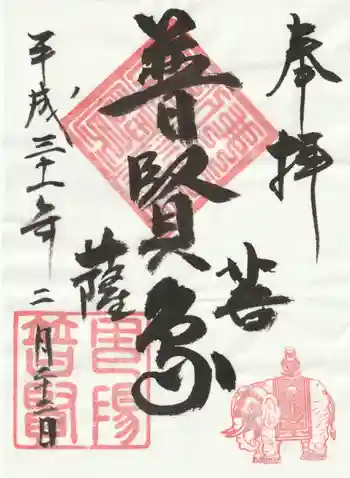 奉拝
普賢象
菩
薩
平成三十一年二月二十二日
普賢